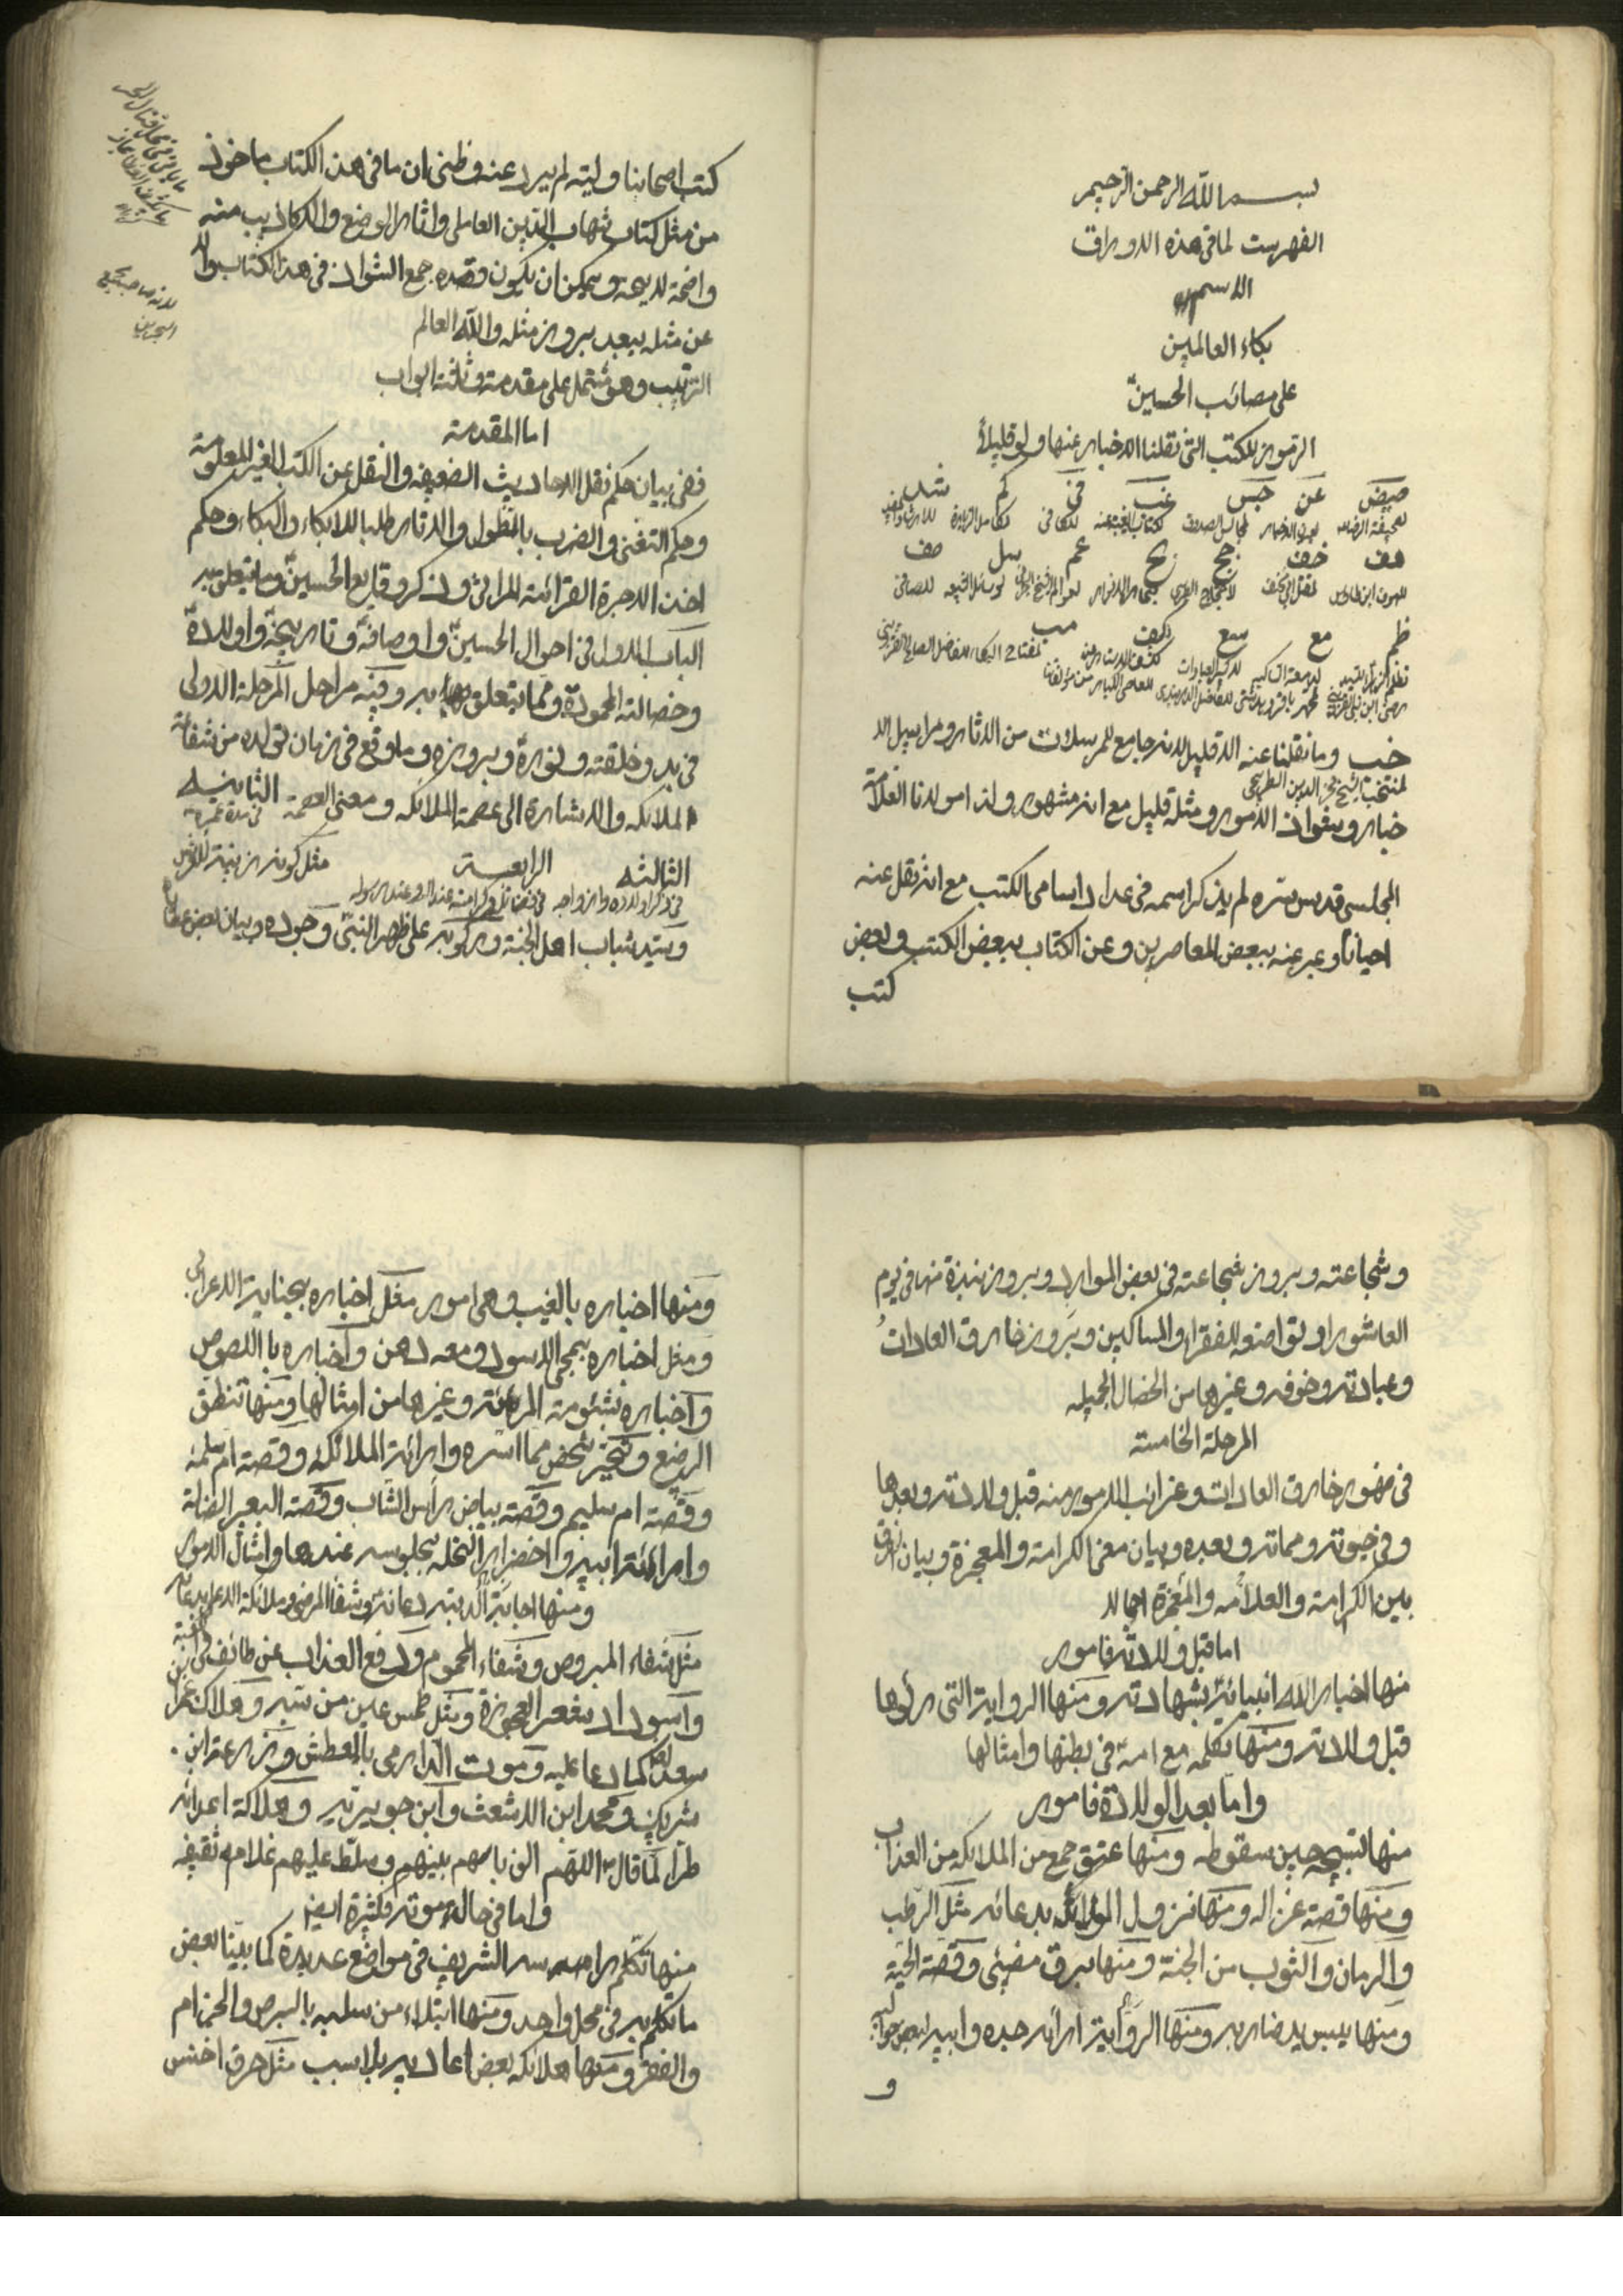 بسم الله الرحمن الرحيم
الفهرست لما في هذه الاوراق
الاسم
بكاء العالمين
على مصائب الحسين
الرموز للكتب التي نقلنا الاخبار عنها ولو قليلاً
صيض عن جس غب في كم شد
لصحيفة الرضا لعيون الاخبار لمجالس الصدوق لكتاب الغيبة للكافي لكامل الزيارة للارشاد
هف خف جج بح عم يل صف
للهوف ابن طاوس لمقتل ابي مخنف لاحتجاج الطبرسي لبحار الانوار لعوالم لوسائل الشيعه للصافي
ظم مع سع كف مب
لمفتاح البكاء للفاضل الصالح
خب وما نقلنا عنه الا قليل لانه جامع للمرسلات من الاثار ومراسيل الا
لمنتخب الشيخ فخر الدين الطريحي
خبار وشواذ الامور ومثله قليل مع انه مشهور ولذا مولانا العلامة
المجلسي قدس سره لم يذكر اسمه في عداد اسامي الكتب مع انه نقل عنه
احياناً وعبر عنه ببعض المعاصرين وعن الكتاب ببعض الكتب وبعض
كتب
كتب اصحابنا وليته لم يرد عنه وظني ان ما في هذا الكتاب ماخوذ
من مثل كتاب شهاب الدين العاملي واثار الوضع والاكاذيب منه
واضحة لديه ويمكن ان يكون قصده جمع الشواذ في هذا الكتاب والا
عن مثله يبعد بروز مثله والله العالم
الترتيب وهو مشتمل على مقدمة وثلثة ابواب
اما المقدمة
ففي بيان حكم نقل الاحاديث الضعيفه والنقل عن الكتب الغير المعلومة
وحكم التغني والضرب بالطبول والاوتار طلبا للابكاء والبكاء وحكم
اخذ الاجرة القرائة المراثي وذكر وقايع الحسين وما يتعلق به
الباب الاول في احوال الحسين واوصافه وتاريخه واولاده
وخصالته المحمودة ومما يتعلق به وفيه مراحل المرحلة الاولى
في بدو خلقته ونوره وبروزه وما وقع في زمان تولده من شفاعة
الملائكه والاشارة الى عصمة الملائكه ومعنى العصمة الثانيه في مدة عمره
الثالثه الرابعة مثل كونه زينة للارض
في ذكر اولاده وازواجه في فضائل وكرامته عند الله وعند رسوله
وسيد شباب اهل الجنة وركوبه على ظهر النبي وجوده وبيان بعض عطاياه
وشجاعته وبروز شجاعته في بعض الموارد وبروز نبذة منها في يوم
العاشورا وتواضعه للفقراء والمساكين وبروز خارق العادات
وعبادته وخوفه وغيرها من الخصال الجميله
المرحلة الخامسة
في ظهور خارق العادات وغرائب الامور منه قبل ولادته وبعدها
وفي حيوته ومماته وبعده وبيان معنى الكرامة والمعجزة وبيان الفرق
بين الكرامة والعلامه والمعجزة اجمالا
اما قبل ولادته فامور
منها اخبار الله انبيائه بشهادته ومنها الرواية التي رأوها
قبل ولادته ومنها تكلمه مع امه في بطنها وامثالها
واما بعد الولادة فامور
منها تسبيحه حين سقوطه ومنها عتق جمع من الملائكه من العذاب
ومنها قصة غزاله ومنها نزول الموائد بدعائه مثل الرطب
والرمان والثوب من الجنة ومنها برق مضيئ وقصة الحية
ومنها يبس يد ضاربه ومنها الرواية ارائه جده وابيه لبعض
و
ومنها اخباره بالغيب وهي امور مثل اخباره بجناية الاعرابي
ومثل اخباره بمجئ الاسود ومعه دهن واخباره باللصوص
واخباره بشئومة المرئة وغيرها من امثالها ومنها تنطق
الرضيع وتخيير شخص مما اسره وارائة الملائكه وقصة ام سلمة
وقصة ام سليم وقصة بياض راس الشاب وقصة البعير الضالة
وامرائة ابيه واخضرار النخله بجلوسه عندها وامثال الامور
ومنها اجابة الادعية دعائه وشفاء المرضى
مثل شفاء المبروص وشفاء المحموم ودفع العذاب عن طائف
واسوداد شعر العجوزة ومثل طمس عين من سبه وهلاك
سعد كما دعا عليه وموت الدارمي بالعطش وزرعة ابن
شريك ومحمد ابن الاشعث وابن جويرية وهلاكة اعدائه
طراً لما قال اللهم الق باسهم بينهم وسلط عليهم غلام ثقيف
واما في حالة موته فكثيرة ايضا
منها تكلم راسه الشريف في مواضع عديدة كما بينا بعض
ما تكلم به في محل واحد ومنها ابتلاء من سلبه بالبرص والجذام
والفقر ومنها هلاكه بعض اعاديه بلا سبب مثل حرق اخنس